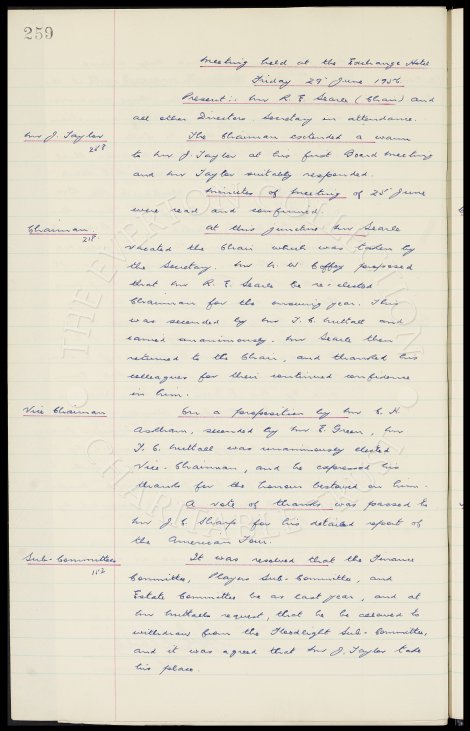 259
Meeting held at the Exchange Hotel
Friday 29th June 1956
Present:- Mr R. E. Searle (Chair) and
all other Directors. Secretary in attendance.
Mr J. Taylor
The Chairman extended a warm
to Mr J. Taylor at his first Board Meeting
and Mr Taylor suitably responded.
Minutes of Meeting of 25th June
were read and confirmed.
Chairman.
At this juncture Mr Searle
vacated the Chair which was taken by
the Secretary. Mr N. W. Coffey proposed
that Mr R. E. Searle be re-elected
Chairman for the ensuing year. This
was seconded by Mr T. C. Nuttall and
carried unanimously. Mr Searle then
returned to the Chair, and thanked his
colleagues for their continued confidence
in him.
Vice Chairman
On a proposition by Mr C. H.
Askham, seconded by Mr E. Green, Mr
T. C. Nuttall was unanimously elected
Vice-Chairman, and he expressed his
thanks for the honour bestowed on him.
A vote of thanks was passed to
Mr J. C. Sharp for his detailed report of
the American Tour.
Sub-Committees
It was resolved that the Finance
Committee, Players Sub-Committee, and
Estate Committee be as last year, and at
Mr Nuttalls request, that he be allowed to
withdraw from the Floodlight Sub-Committee,
and it was agreed that Mr J. Taylor take
his place.
THE EVERTON COLLECTION
CHARITABLE